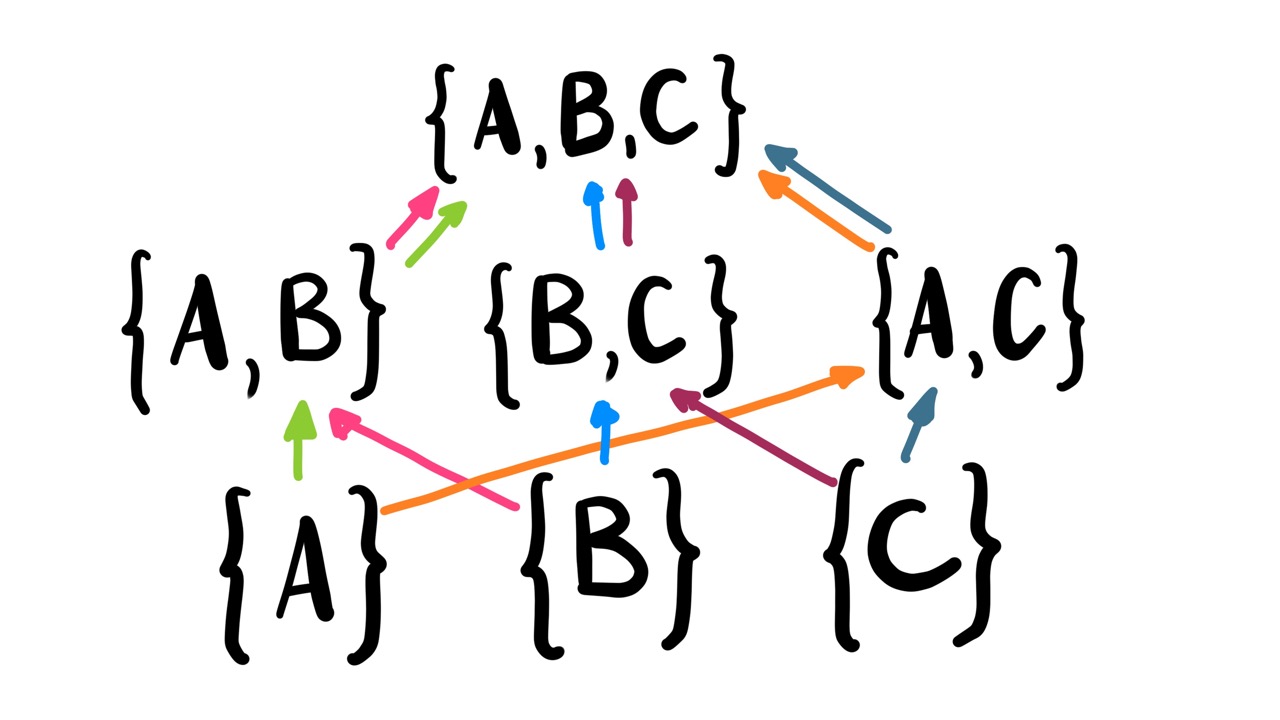 {A,B,C}
{A,B} {B,C} {A,C}
{A} {B} {C}